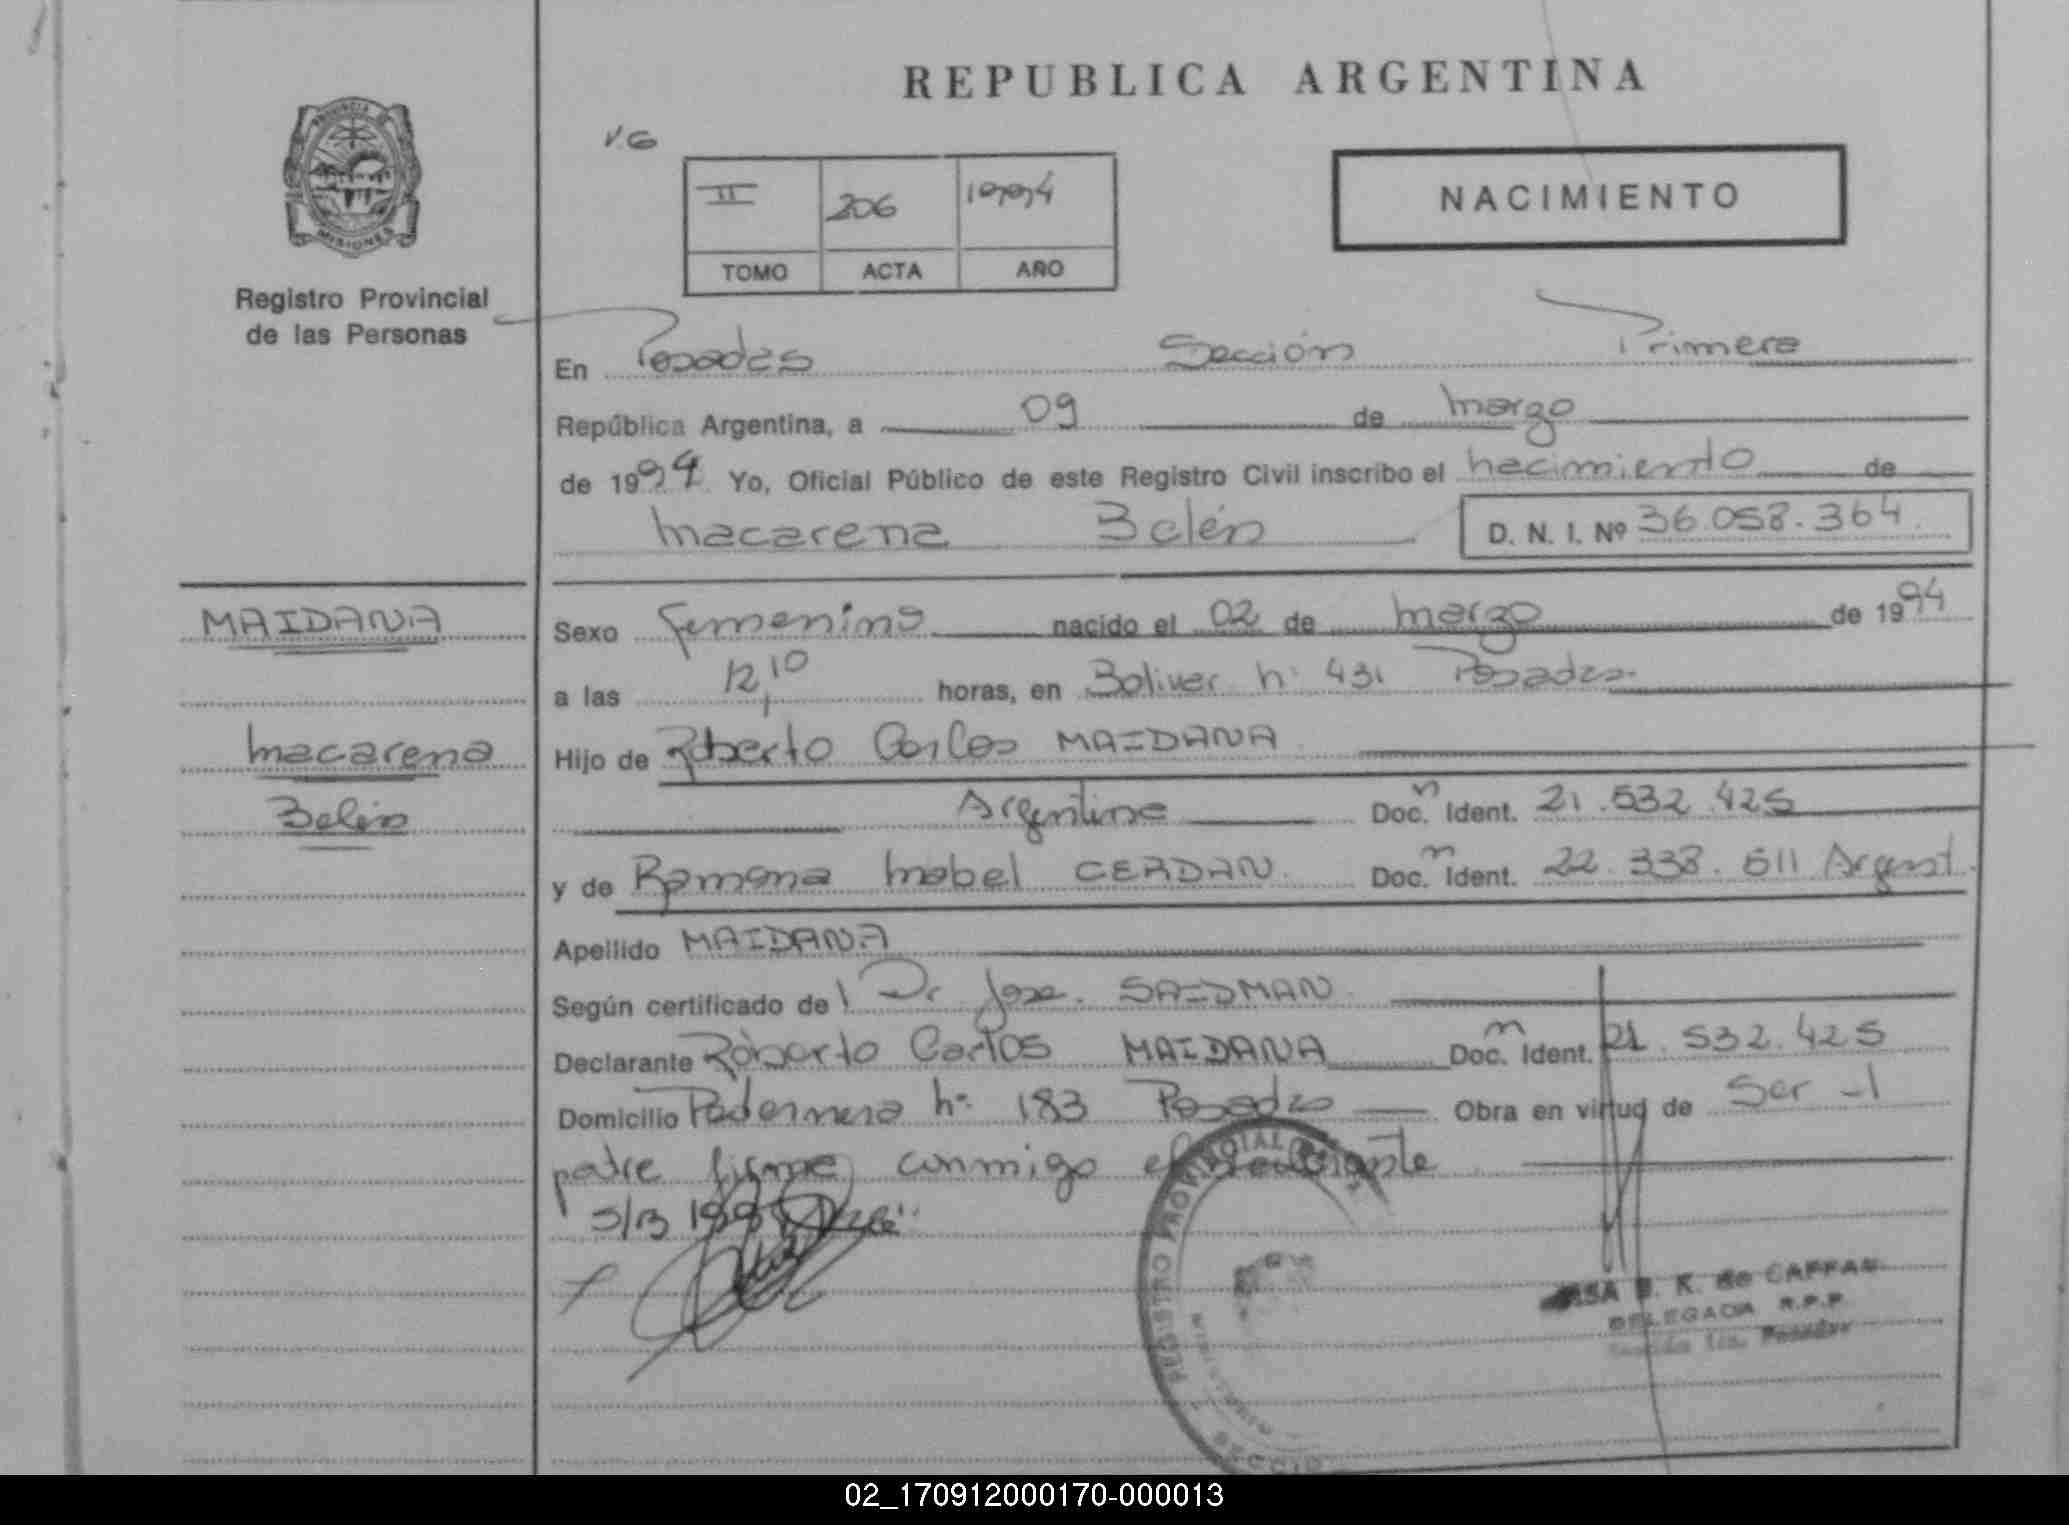 REPUBLICA ARGENTINA
PROVINCIA DE
MISIONES
Registro Provincial
de las Personas
V.G
II 206 1994
TOMO ACTA AÑO
NACIMIENTO
En Posadas Sección Primera
República Argentina, a 09 de marzo
de 1994 Yo, Oficial Público de este Registro Civil inscribo el nacimiento de
Macarena Belén D. N. I. Nº 36.058.364
MAIDANA
Macarena
Belén
Sexo femenino nacido el 02 de marzo de 1994
a las 12,10 horas, en Bolivar nº 431 Posadas.
Hijo de Roberto Carlos MAIDANA
Argentino Doc. Ident. 21.532.425
y de Ramona Mabel CERDAN. Doc. Ident. 22.338.511 Argent.
Apellido MAIDANA
Según certificado de Dr Jose. SAIDMAN
Declarante Roberto Carlos MAIDANA Doc. Ident. 21.532.425
Domicilio Padernera nº 183 Posadas Obra en virtud de Ser el
padre firma conmigo el declarante
REGISTRO PROVINCIAL
B. K. de CAFFAN
DELEGADA R.P.P.
02_170912000170-000013